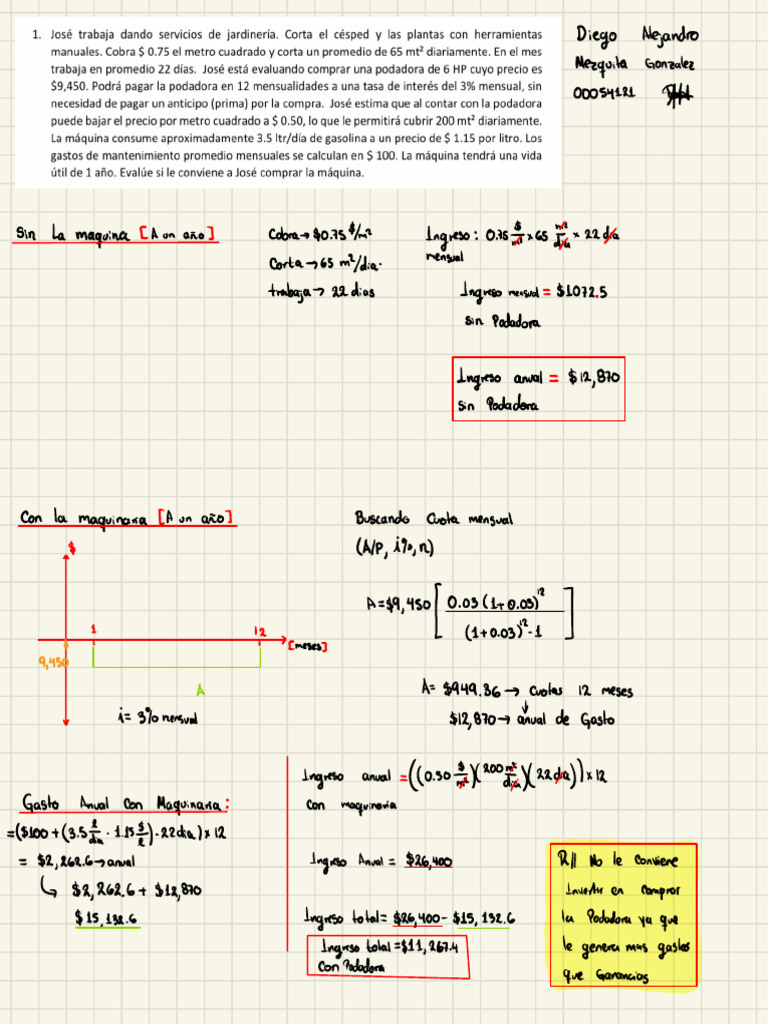 1. José trabaja dando servicios de jardinería. Corta el césped y las plantas con herramientas
manuales. Cobra $ 0.75 el metro cuadrado y corta un promedio de 65 mt² diariamente. En el mes
trabaja en promedio 22 días. José está evaluando comprar una podadora de 6 HP cuyo precio es
$9,450. Podrá pagar la podadora en 12 mensualidades a una tasa de interés del 3% mensual, sin
necesidad de pagar un anticipo (prima) por la compra. José estima que al contar con la podadora
puede bajar el precio por metro cuadrado a $ 0.50, lo que le permitirá cubrir 200 mt² diariamente.
La máquina consume aproximadamente 3.5 ltr/día de gasolina a un precio de $ 1.15 por litro. Los
gastos de mantenimiento promedio mensuales se calculan en $ 100. La máquina tendrá una vida
útil de 1 año. Evalúe si le conviene a José comprar la máquina.
Diego Alejandro
Mezquita Gonzalez
00054121
Sin La maquina [A un año]
Cobra → $0.75 $/m²
Corta → 65 m²/dia.
trabaja → 22 dias
Ingreso: 0.75 $/m² × 65 m²/dia × 22 dia
mensual
Ingreso mensual = $1072.5
sin Podadora
Ingreso anual = $12,870
sin Podadora
Con la maquinaria [A un año]
$
1
12
[meses]
9,450
A
i= 3% mensual
Buscando Cuota mensual
(A/P, i%, n)
A=$9,450 [ 0.03 (1+0.03)^12 / (1+0.03)^12 - 1 ]
A= $949.36 → Cuotas 12 meses
$12,870 → anual de Gasto
Gasto Anual Con Maquinaria:
=($100+(3.5 l/dia · 1.15 $/l)·22dia)×12
= $2,262.6 → anual
↳ $2,262.6 + $12,870
$15,132.6
Ingreso anual =((0.50 $/m²)(200 m²/dia)(22 dia))×12
con maquinaria
Ingreso Anual = $26,400
Ingreso total= $26,400 - $15,132.6
Ingreso total =$11,267.4
Con Podadora
R// No le Conviene
Invertir en Comprar
la Podadora ya que
le genera mas gastos
que Ganancias